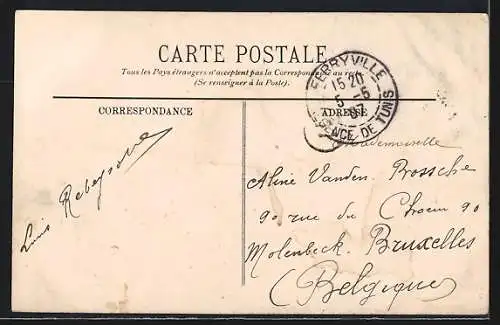 CARTE POSTALE
Tous les Pays étrangers n'acceptent pas la Correspondance au recto
(Se renseigner à la Poste).
FERRYVILLE
15 20
5 - 5
07
RÉGENCE DE TUNIS
CORRESPONDANCE
ADRESSE
Mademoiselle
Aline Vanden Bossche
90 rue du Choeur 90
Molenbeck. Bruxelles
(Belgique)
Louis